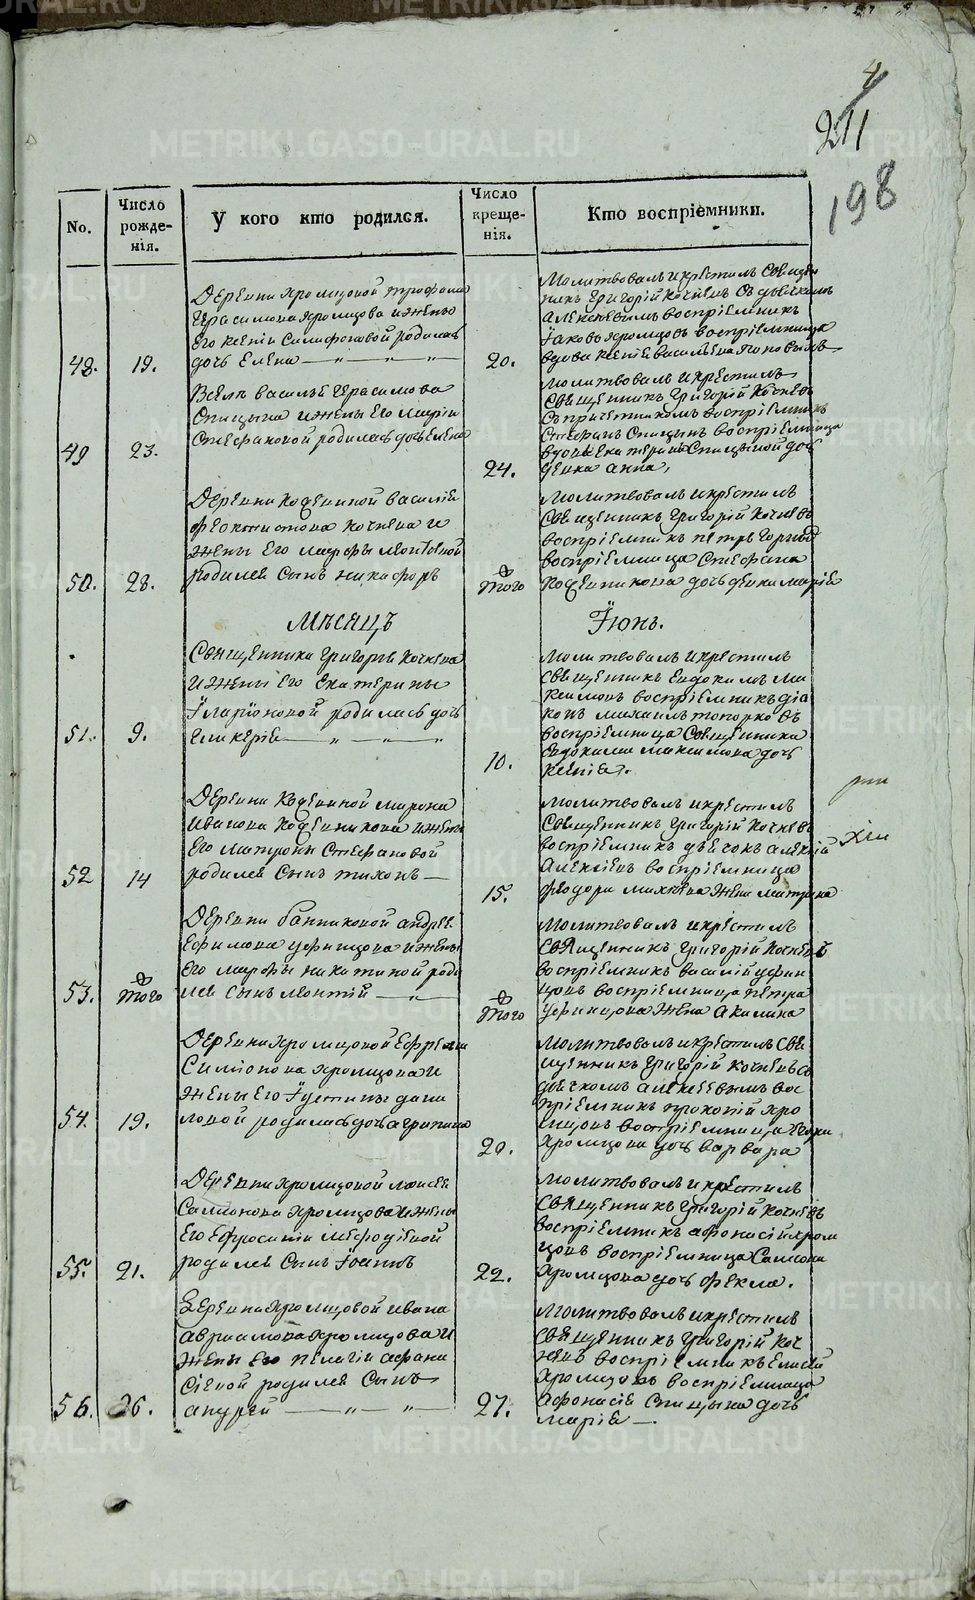 4
211
198
No.
Число рожде-нія.
У кого кто родился.
Число креще-нія.
Кто воспріемники.
48.
19.
Деревни Хромцовой Трофима
Герасимова Хромцова и жены
его Ксеніи Самфоновой родилась
дочь Елена
20.
Молитвовалъ и крестилъ Священ
никъ Григорій Кочневъ съ дьячкомъ
Алексѣевымъ воспріемникъ
Іаковъ Хромцовъ воспріемница
вдова Ксенія Васильева
49
23.
Василья Герасимова
Спицына и жены его Маріи
Стефановой родилась дочь Елена
24.
Молитвовалъ и крестилъ
Священникъ Григорій Кочневъ
съ причетникомъ воспріемникъ
Стефанъ Спицынъ воспріемница
Спицыной дочь
девка Анна,
50.
28.
Деревни Кодѣнной Василія
Феоктистова Кочнева и
жены его Марфы Леонтьевой
родился сынъ Никифоръ
Того
Молитвовалъ и крестилъ
Священникъ Григорій Кочневъ
воспріемникъ Петръ
воспріемница Стефана
Кодѣникова дочь девка Марія
Мѣсяцъ
Іюнь.
51.
9.
Священника Григорья Кочнева
и жены его Екатерины
Иларіоновой родилась дочь
Гликерія
10.
Молитвовалъ и крестилъ
священникъ Евдокимъ Ма
ксимовъ воспріемникъ діа
конъ Михаилъ Топорковъ
воспріемница Священника
Евдокима Максимова дочь
Ксенія.
52
14
Деревни Кодѣнной Мирона
Иванова Кодѣникова и жены
его Матроны Стефановой
родился сынъ Тихонъ
15.
Молитвовалъ и крестилъ
Священникъ Григорій Кочневъ
воспріемникъ дьячокъ Алексій
Алексѣевъ воспріемница
Федора Михѣева жена Матрона
53.
Того
Деревни Банниковой Андрея
Ефимова Уфинцова и жены
его Марфы Никитиной роди
лся сынъ Леонтій
Того
Молитвовалъ и крестилъ
Священникъ Григорій Кочневъ
воспріемникъ Василій Уфин
цовъ воспріемница Петра
Уфинцова жена Акилина
54.
19.
Деревни Хромцовой Ефрема
Симіонова Хромцова и
жены его Іустины Дани
ловой родилась дочь Агрипина
20.
Молитвовалъ и крестилъ Свя
щенникъ Григорій Кочневъ съ
дьячкомъ Алексѣевымъ вос
пріемникъ Прокопій Хро
мцовъ воспріемница
Хромцова дочь Варвара
55.
21.
Деревни Хромцовой Моисея
Самсонова Хромцова и жены
его Ефросиніи Мефодіевой
родился сынъ Іоаннъ
22.
Молитвовалъ и крестилъ
Священникъ Григорій Кочневъ
воспріемникъ Афонасій Хром
цовъ воспріемница Самсона
Хромцова дочь Фекла.
56.
26.
Деревни Хромцовой Ивана
Авраамова Хромцова и
жены его Пелагіи Афана
сіевой родился сынъ
Андрей
27.
Молитвовалъ и крестилъ
Священникъ Григорій Коч
невъ воспріемникъ Елисей
Хромцовъ воспріемница
Афонасія Спицына дочь
Марія
METRIKI.GASO-URAL.RU